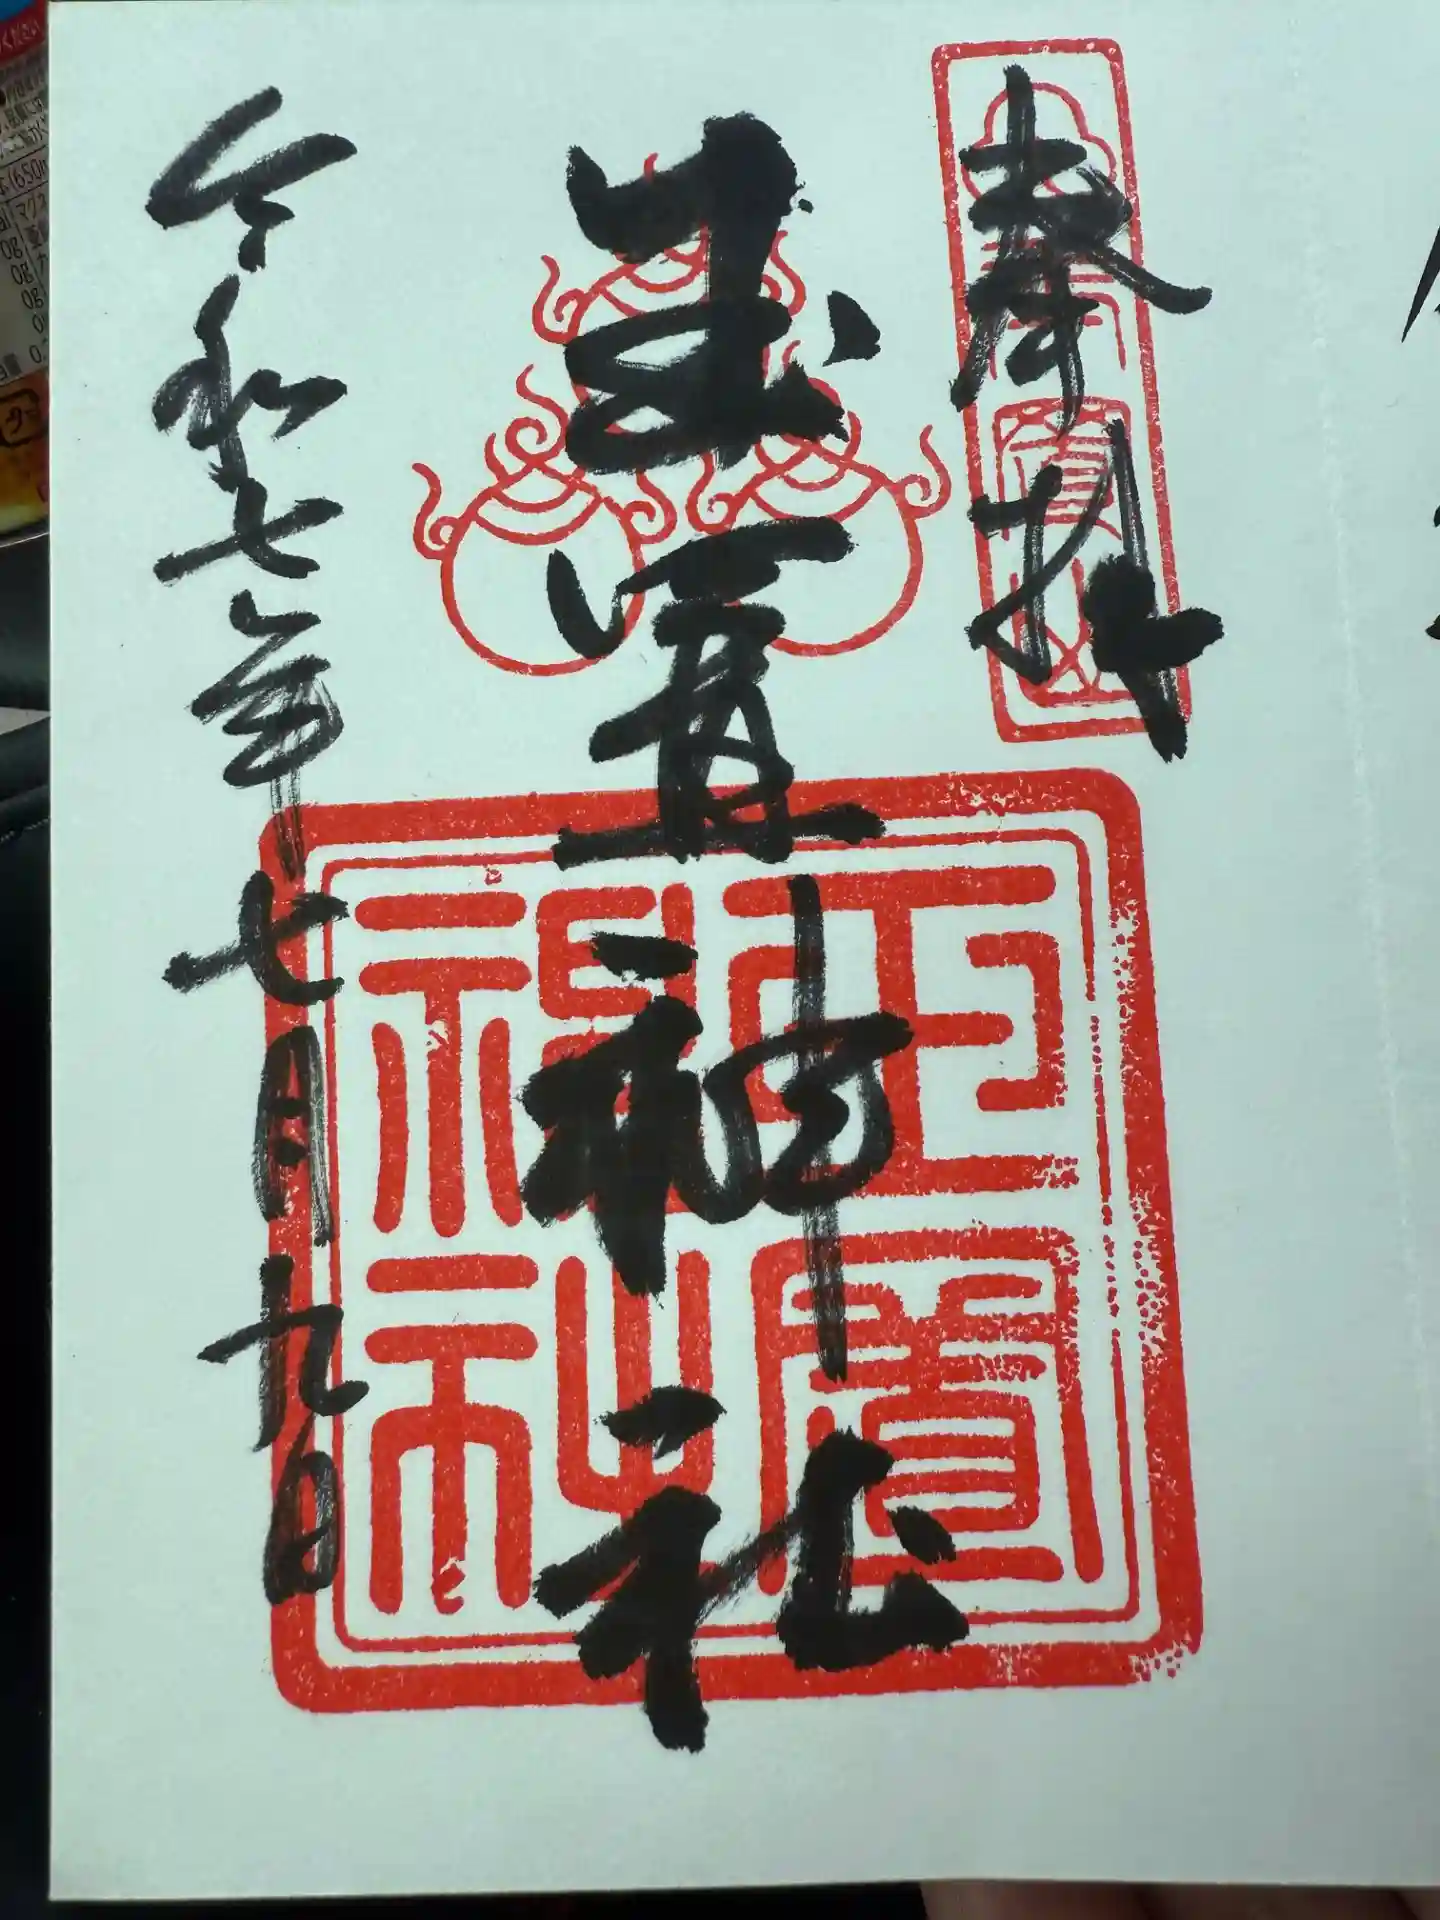 奉拝
玉置神社
令和七年七月九日
玉置神社